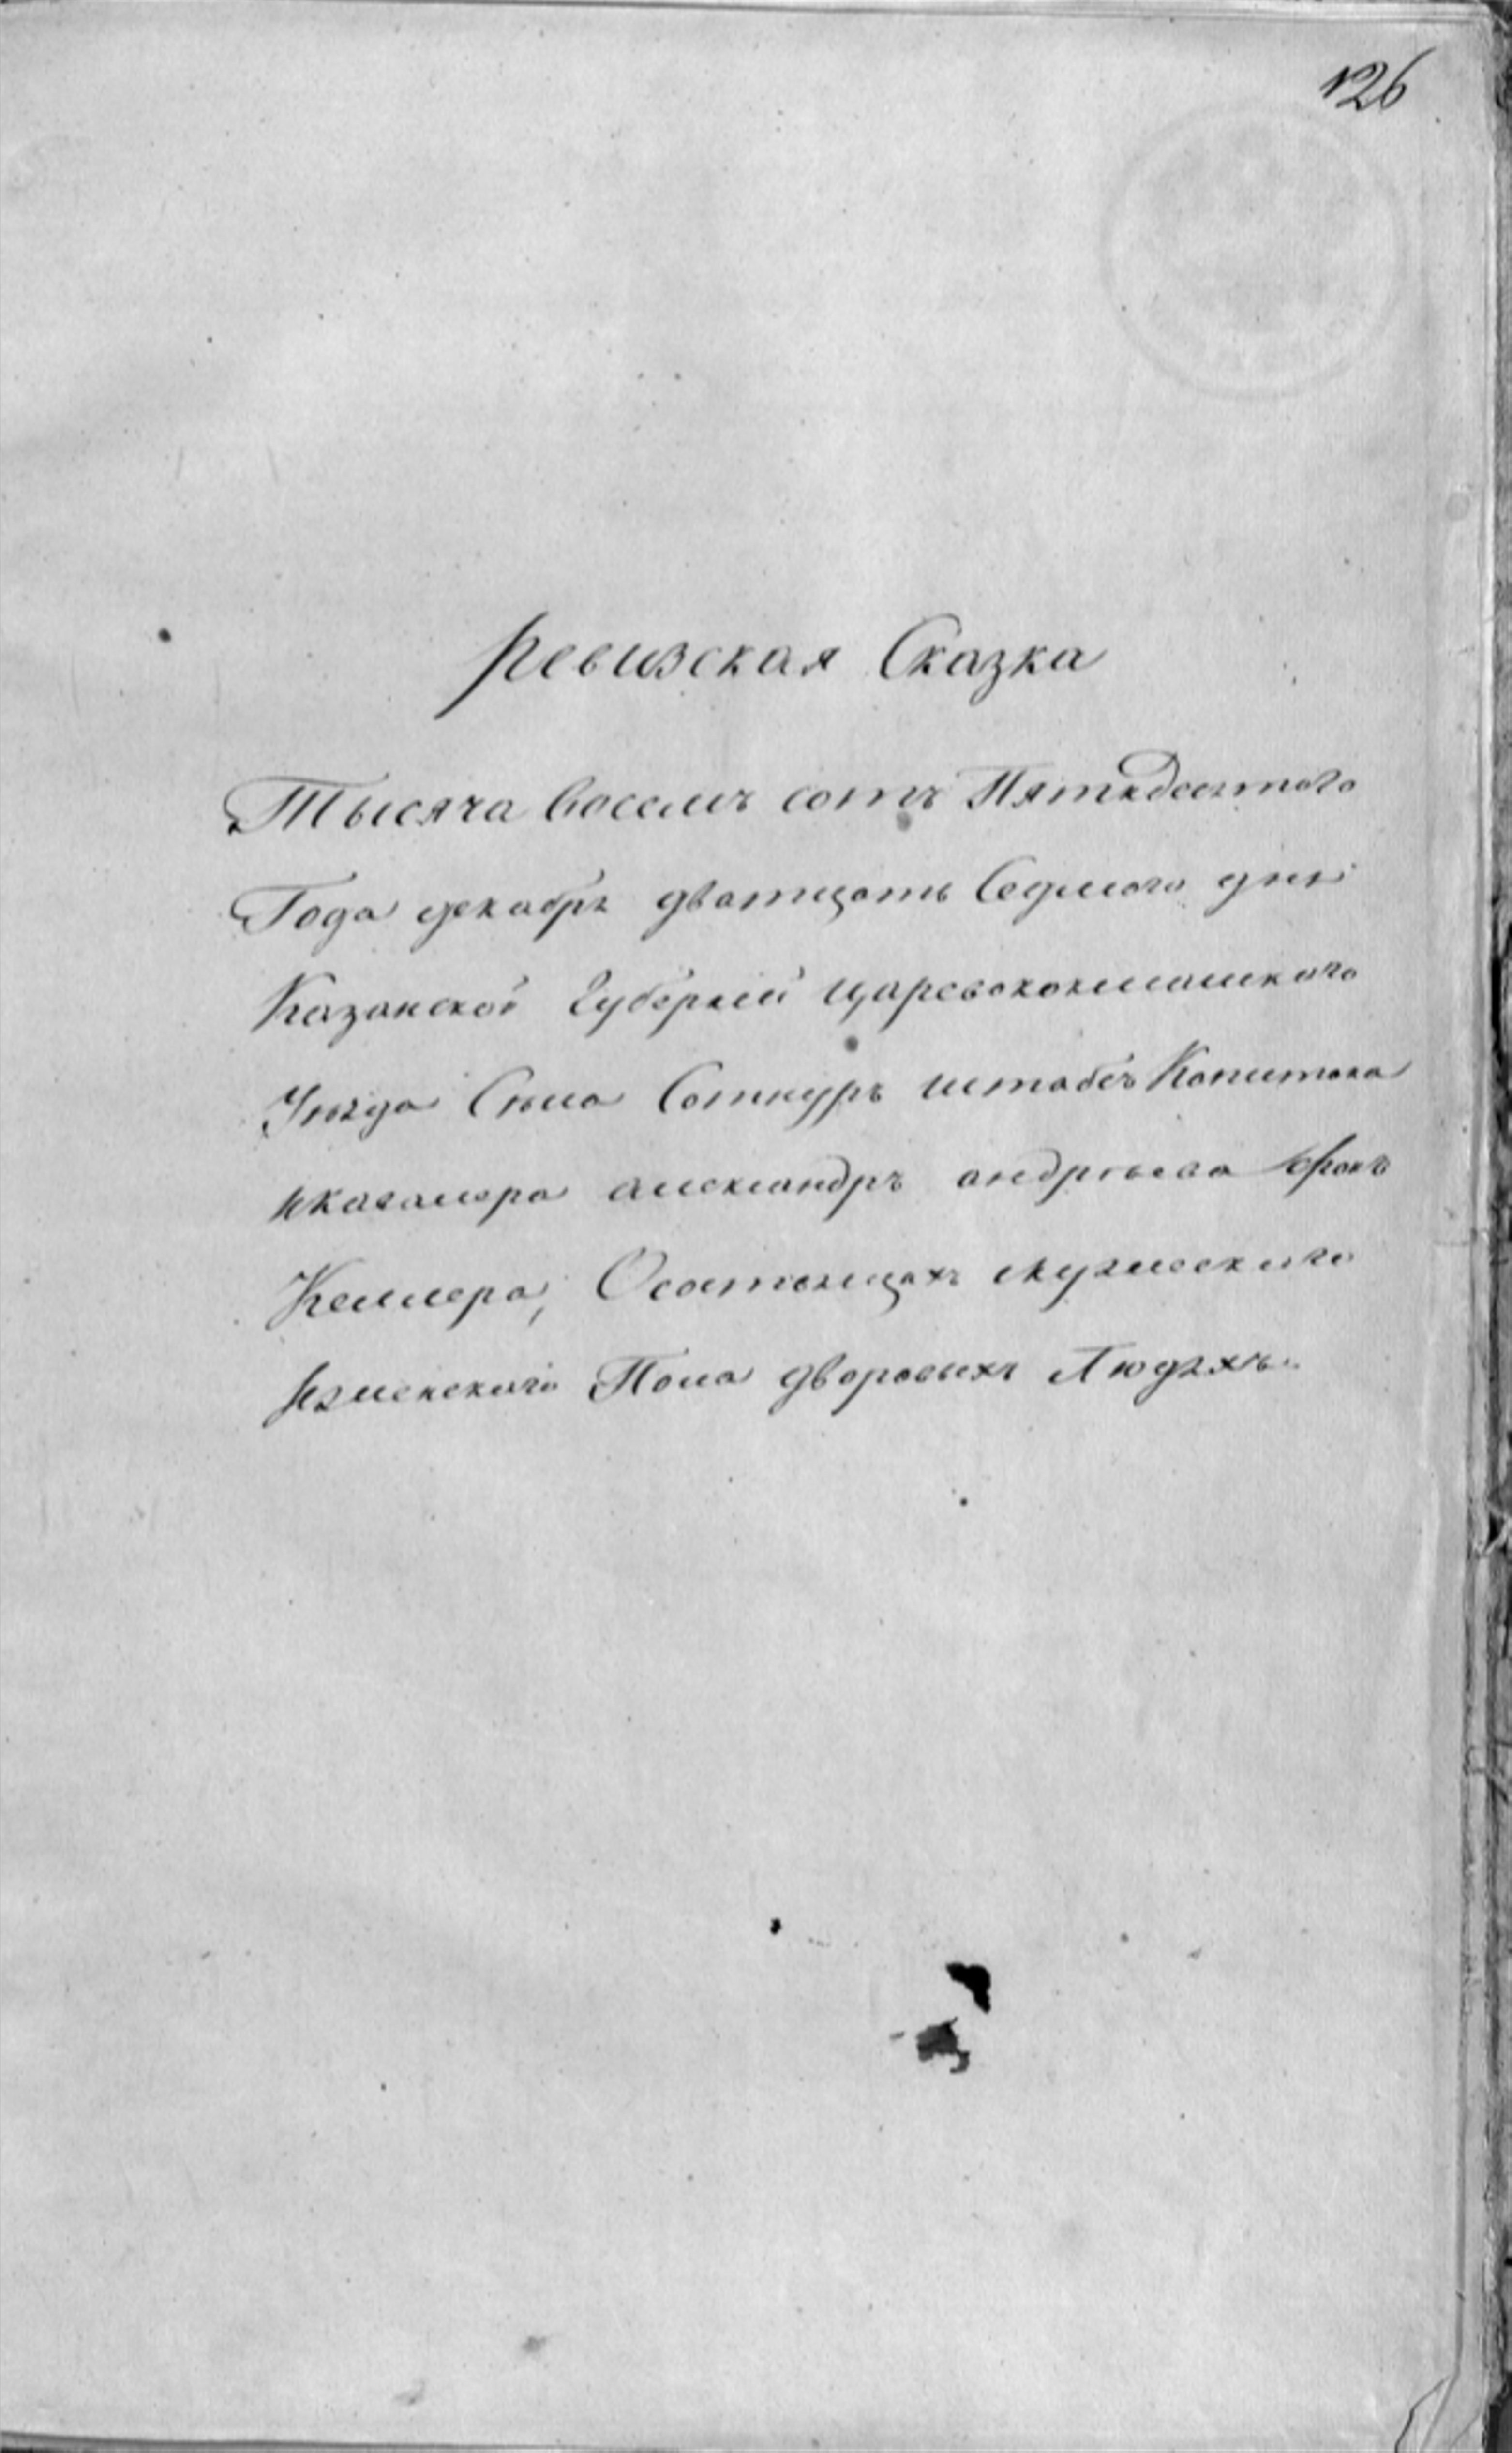 126
Ревизская Сказка
Тысяча Восемъ сотъ Пятидесятаго
Года декабря дватцать Седмаго дня
Казанской Губернiи царевококшашкаго
Уѣзда Сѣла Сотнуръ штабсъ Капитана
икавалера александръ андрѣева Фонъ
Келлера, Осостоящихъ мужескаго
иженскаго Пола дворовыхъ Людяхъ.